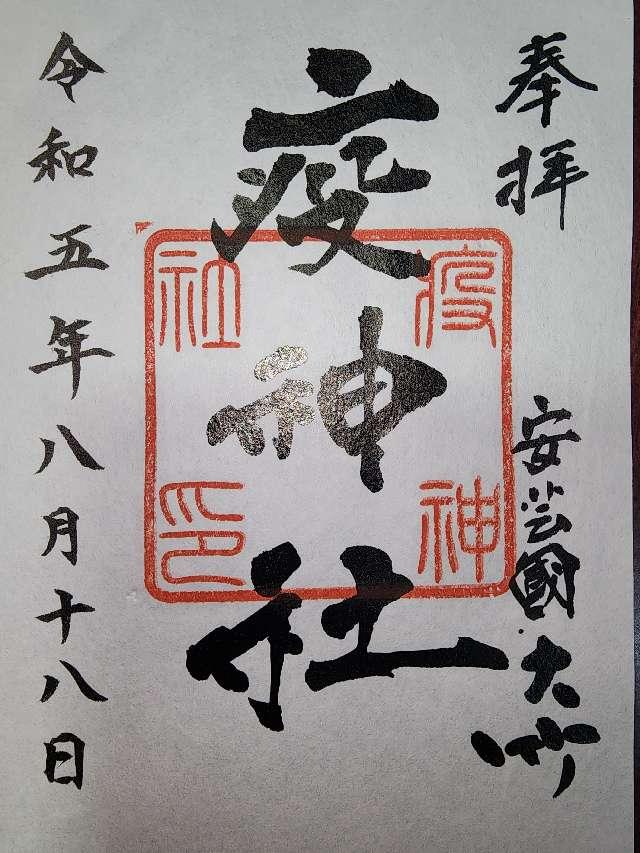 奉拝
安芸國 大竹
疫神社
疫神社印
令和五年八月十八日